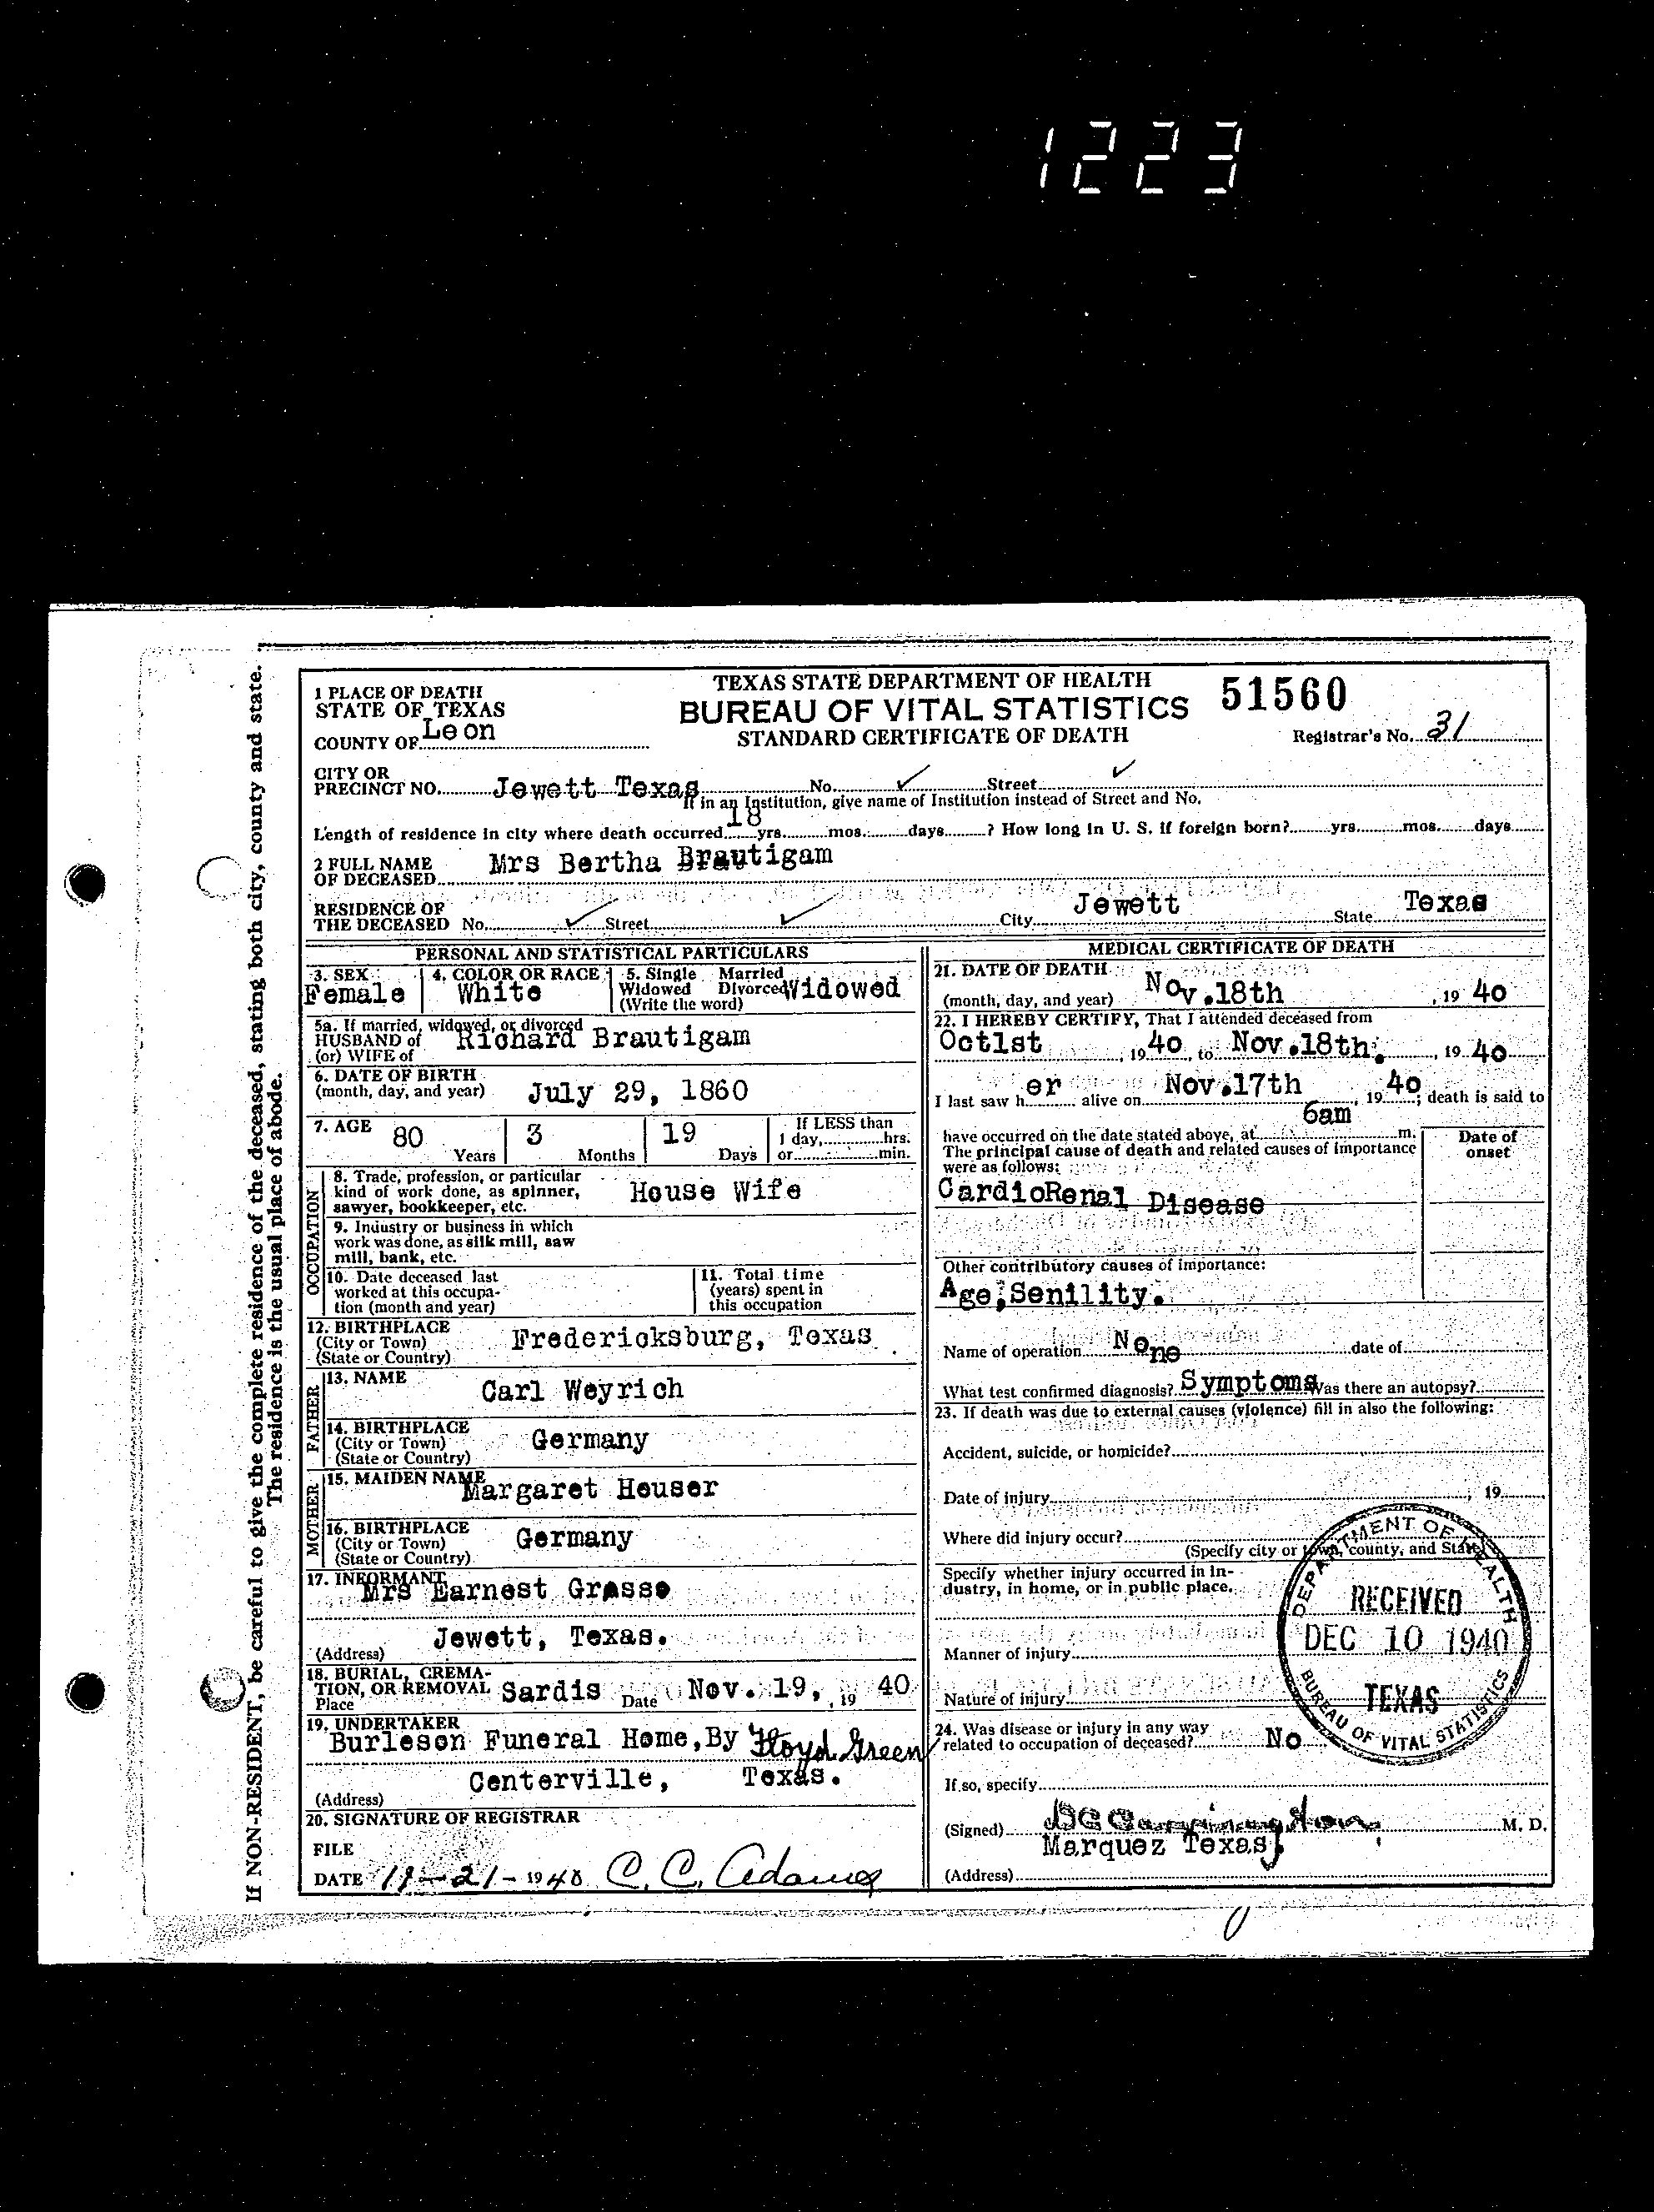 1223
If NON-RESIDENT, be careful to give the complete residence of the deceased, stating both city, county and state.
The residence is the usual place of abode.
1 PLACE OF DEATH
STATE OF TEXAS
COUNTY OF Leon
TEXAS STATE DEPARTMENT OF HEALTH
BUREAU OF VITAL STATISTICS
STANDARD CERTIFICATE OF DEATH
51560
Registrar's No. 31
CITY OR
PRECINCT NO. Jewett Texas No. ✓ Street ✓
If in an Institution, give name of Institution instead of Street and No.
Length of residence in city where death occurred 18 yrs. mos. days ? How long in U. S. if foreign born? yrs. mos. days
2 FULL NAME
OF DECEASED Mrs Bertha Brautigam
RESIDENCE OF
THE DECEASED No. ✓ Street ✓ City Jewett State Texas
PERSONAL AND STATISTICAL PARTICULARS
3. SEX
Female
4. COLOR OR RACE
White
5. Single Married
Widowed Divorced Widowed
(Write the word)
5a. If married, widowed, or divorced
HUSBAND of Richard Brautigam
(or) WIFE of
6. DATE OF BIRTH
(month, day, and year) July 29, 1860
7. AGE 80 Years 3 Months 19 Days
If LESS than
1 day, hrs.
or min.
OCCUPATION
8. Trade, profession, or particular
kind of work done, as spinner, House Wife
sawyer, bookkeeper, etc.
9. Industry or business in which
work was done, as silk mill, saw
mill, bank, etc.
10. Date deceased last
worked at this occupa-
tion (month and year)
11. Total time
(years) spent in
this occupation
12. BIRTHPLACE
(City or Town) Fredericksburg, Texas
(State or Country)
FATHER
13. NAME Carl Weyrich
14. BIRTHPLACE
(City or Town) Germany
(State or Country)
MOTHER
15. MAIDEN NAME Margaret Heuser
16. BIRTHPLACE
(City or Town) Germany
(State or Country)
17. INFORMANT
Mrs Earnest Grasse
(Address) Jewett, Texas.
18. BURIAL, CREMA-
TION, OR REMOVAL
Place Sardis Date Nov. 19, , 19 40
19. UNDERTAKER
Burleson Funeral Home, By Floyd Green
(Address) Centerville, Texas.
20. SIGNATURE OF REGISTRAR
FILE
DATE 11-21-1940 C. C. Adams
MEDICAL CERTIFICATE OF DEATH
21. DATE OF DEATH
(month, day, and year) Nov.18th , 19 40
22. I HEREBY CERTIFY, That I attended deceased from
Oct1st , 19 40 , to Nov.18th. , 19 40
I last saw h er alive on Nov.17th , 19 40 ; death is said to
have occurred on the date stated above, at 6am m.
The principal cause of death and related causes of importance
were as follows:
Date of
onset
CardioRenal Disease
Other contributory causes of importance:
Age, Senility.
Name of operation None date of
What test confirmed diagnosis? Symptoms Was there an autopsy?
23. If death was due to external causes (violence) fill in also the following:
Accident, suicide, or homicide?
Date of injury , 19
Where did injury occur?
(Specify city or town, county, and State)
Specify whether injury occurred in in-
dustry, in home, or in public place.
Manner of injury
Nature of injury
24. Was disease or injury in any way
related to occupation of deceased? No
If so, specify
(Signed) Carrington, M. D.
Marquez Texas
(Address)
DEPARTMENT OF HEALTH
RECEIVED
DEC 10 1940
TEXAS
BUREAU OF VITAL STATISTICS